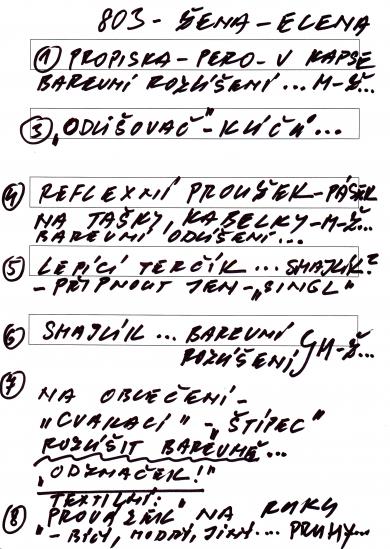 803 - ŠENA - ELENA
① PROPISKA - PERO - V KAPSE
BAREVNÍ ROZLIŠENÍ... M-Ž...
③ "ODLIŠOVAČ" - KLÍČŮ...
④ REFLEXNÍ PROUŽEK - PÁSEK
NA TAŠKY, KABELKY - M-Ž...
BAREVNÍ ODLIŠENÍ...
⑤ LEPÍCÍ TERČÍK ... SMAJLÍK?
- PŘIPNOUT JEN - "SINGL"
⑥ SMAJLÍK ... BAREVNÍ
ROZLIŠENÍ M-Ž...
⑦ NA OBLEČENÍ -
"CVAKACÍ" - "ŠTÍPEC"
ROZLIŠIT BAREVNĚ...
"ODZNAČEK!"
TEXTILNÍ:
⑧ "PROVÁZEK" NA RUKU
- BÍLÝ, MODRÝ, JINÝ.... PRUHY...